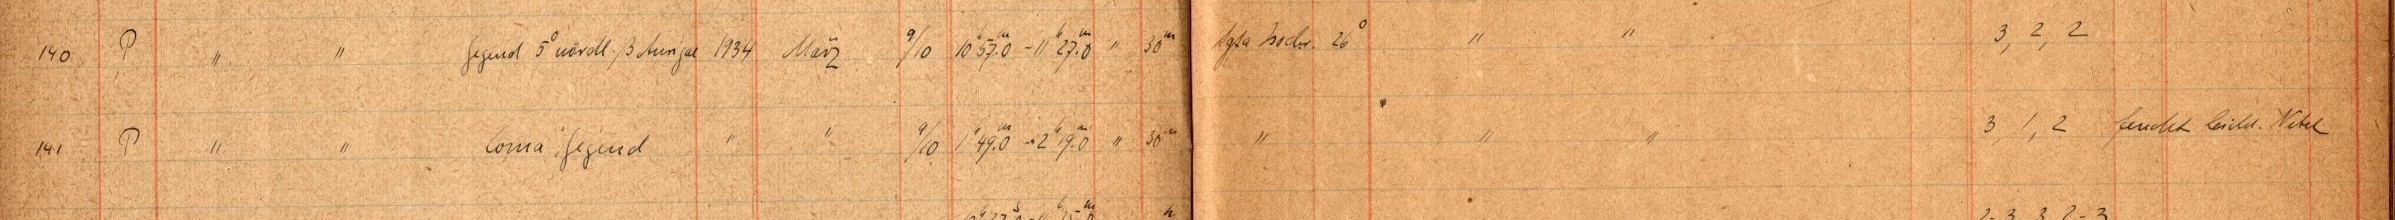 140 P " " Gegend 5° nördl. β Aurigae 1934 März 9/10 10ʰ57.ᵐ0 - 11ʰ27.ᵐ0 " 30ᵐ Agfa Isochr. 26° " " 3, 2, 2
141 P " " Coma Gegend " " 9/10 1ʰ49.ᵐ0 - 2ʰ19.ᵐ0 " 30ᵐ " " " 3, 1, 2 feucht leicht. Nebel